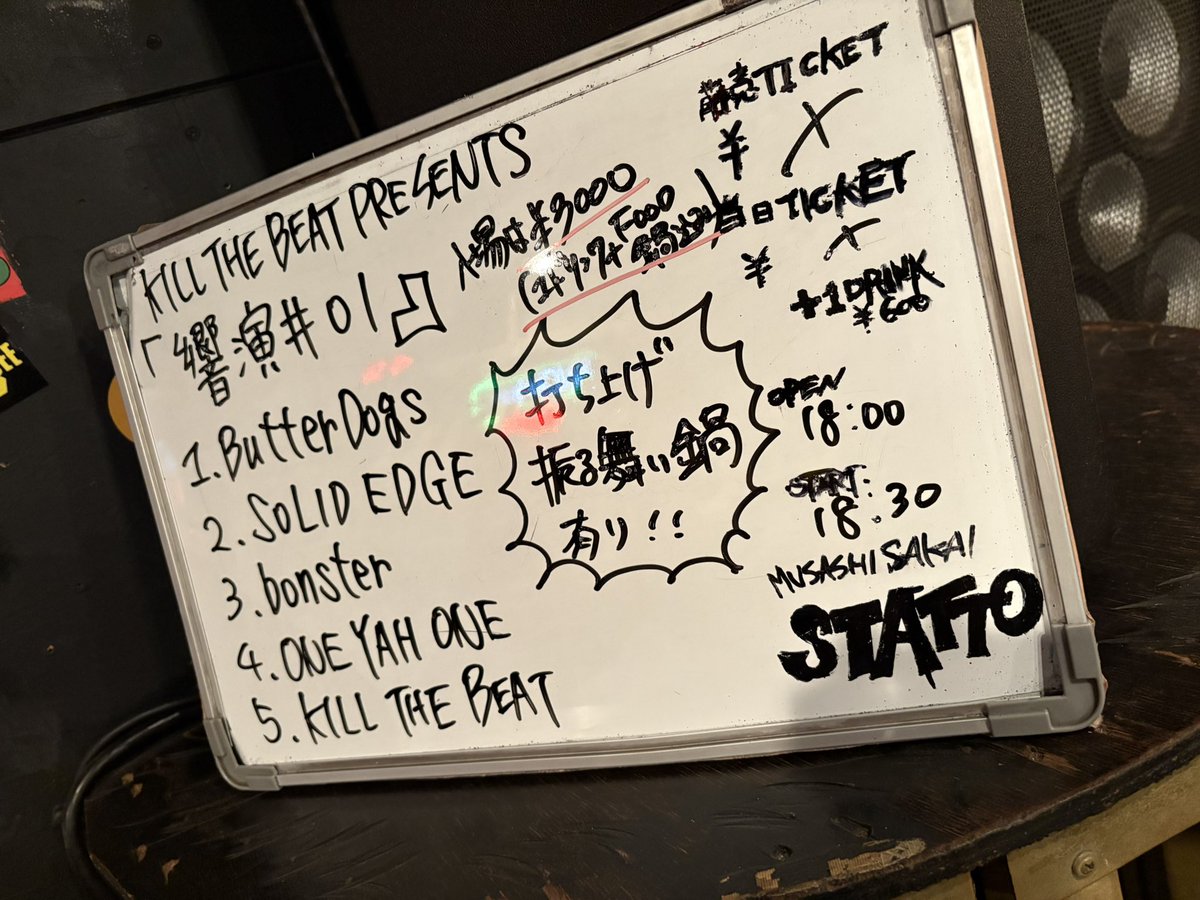 KILL THE BEAT PRESENTS
「響演#01」
1. Butter Dogs
2. SOLID EDGE
3. bonster
4. ONE YAH ONE
5. KILL THE BEAT
入場は¥3000
(1ドリンク+FOOD
鍋込み)
打ち上げ
振る舞い鍋
有り!!
前売TICKET
¥ ×
当日TICKET
¥ ×
+1DRINK
¥600
OPEN
18:00
START:
18:30
MUSASHI SAKAI
STATTO